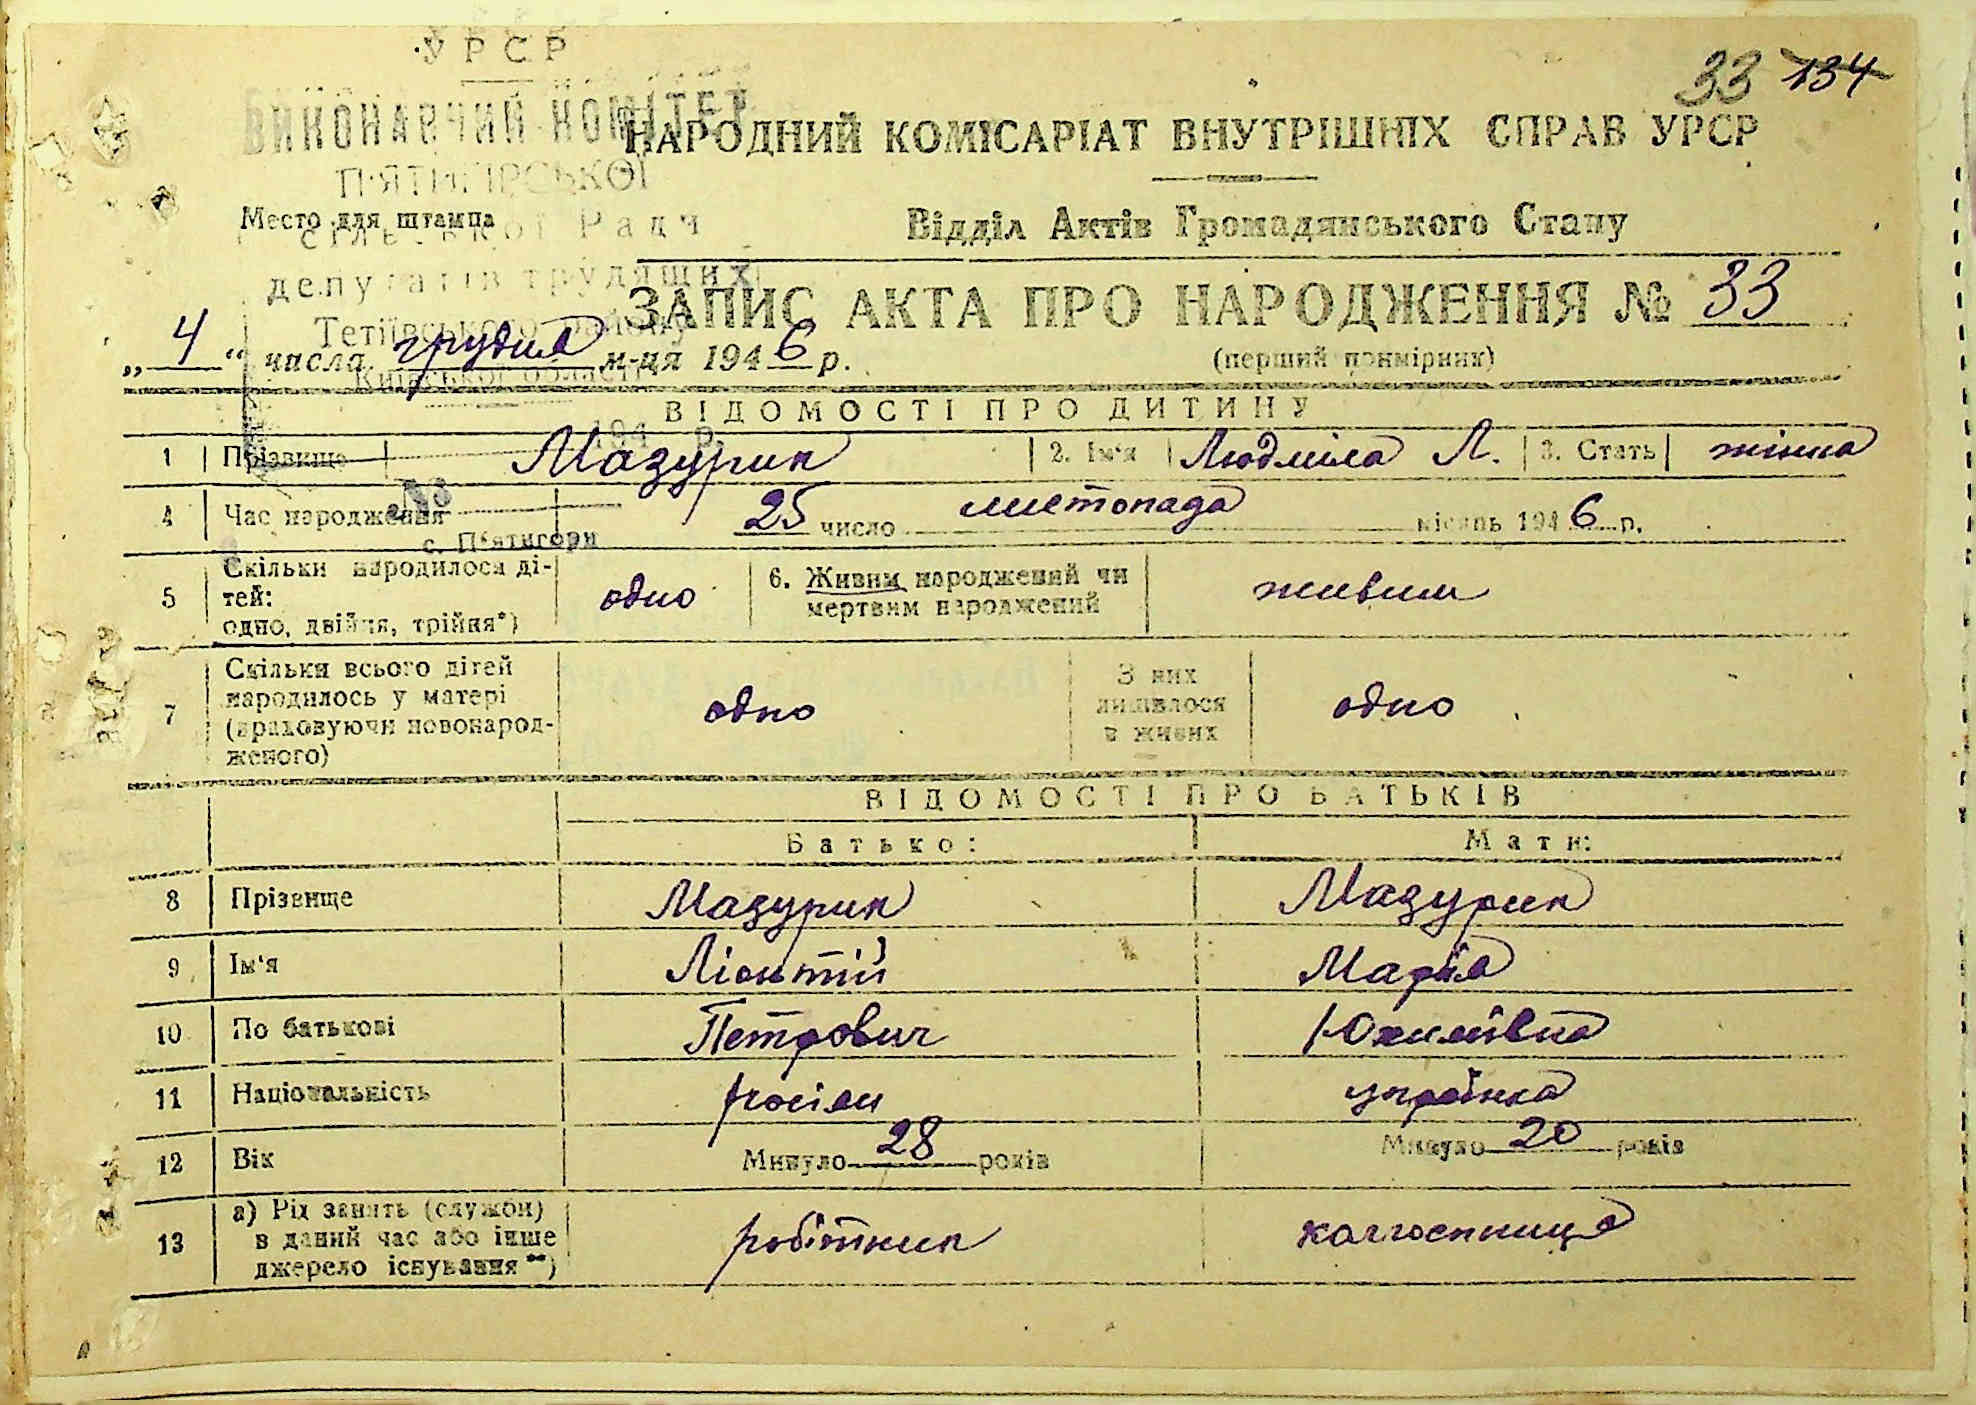 УРСР
33 134
ВИКОНАВЧИЙ КОМІТЕТ
НАРОДНИЙ КОМІСАРІАТ ВНУТРІШНІХ СПРАВ УРСР
П'ЯТИГІРСЬКОЇ
Место для штампа
сільської Ради
Відділ Актів Громадянського Стану
депутатів трудящих
ЗАПИС АКТА ПРО НАРОДЖЕННЯ № 33
Тетіївського району
„4“ числа грудня м-ця 1946 р.
(перший примірник)
Київської області
ВІДОМОСТІ ПРО ДИТИНУ
194 р.
1 Прізвище Мазурик 2. Ім'я Людміла Л. 3. Стать жінка
№
4 Час народження 25 число листопада місяць 1946 р.
с. П'ятигори
5 Скільки народилося ді-
тей:
одно, двійня, трійня*) одно 6. Живим народжений чи
мертвим народжений живим
7 Скільки всього дітей
народилось у матері
(враховуючи новонарод-
женого) одно З них
лишилося
в живих одно
ВІДОМОСТІ ПРО БАТЬКІВ
Батько: Мати:
8 Прізвище Мазурик Мазурик
9 Ім'я Ліонтій Марія
10 По батькові Петрович Юхимівна
11 Національність росіян українка
12 Вік Минуло 28 років Минуло 20 років
13 а) Рід занять (служби)
в даний час або інше
джерело існування**) робітник колгоспниця